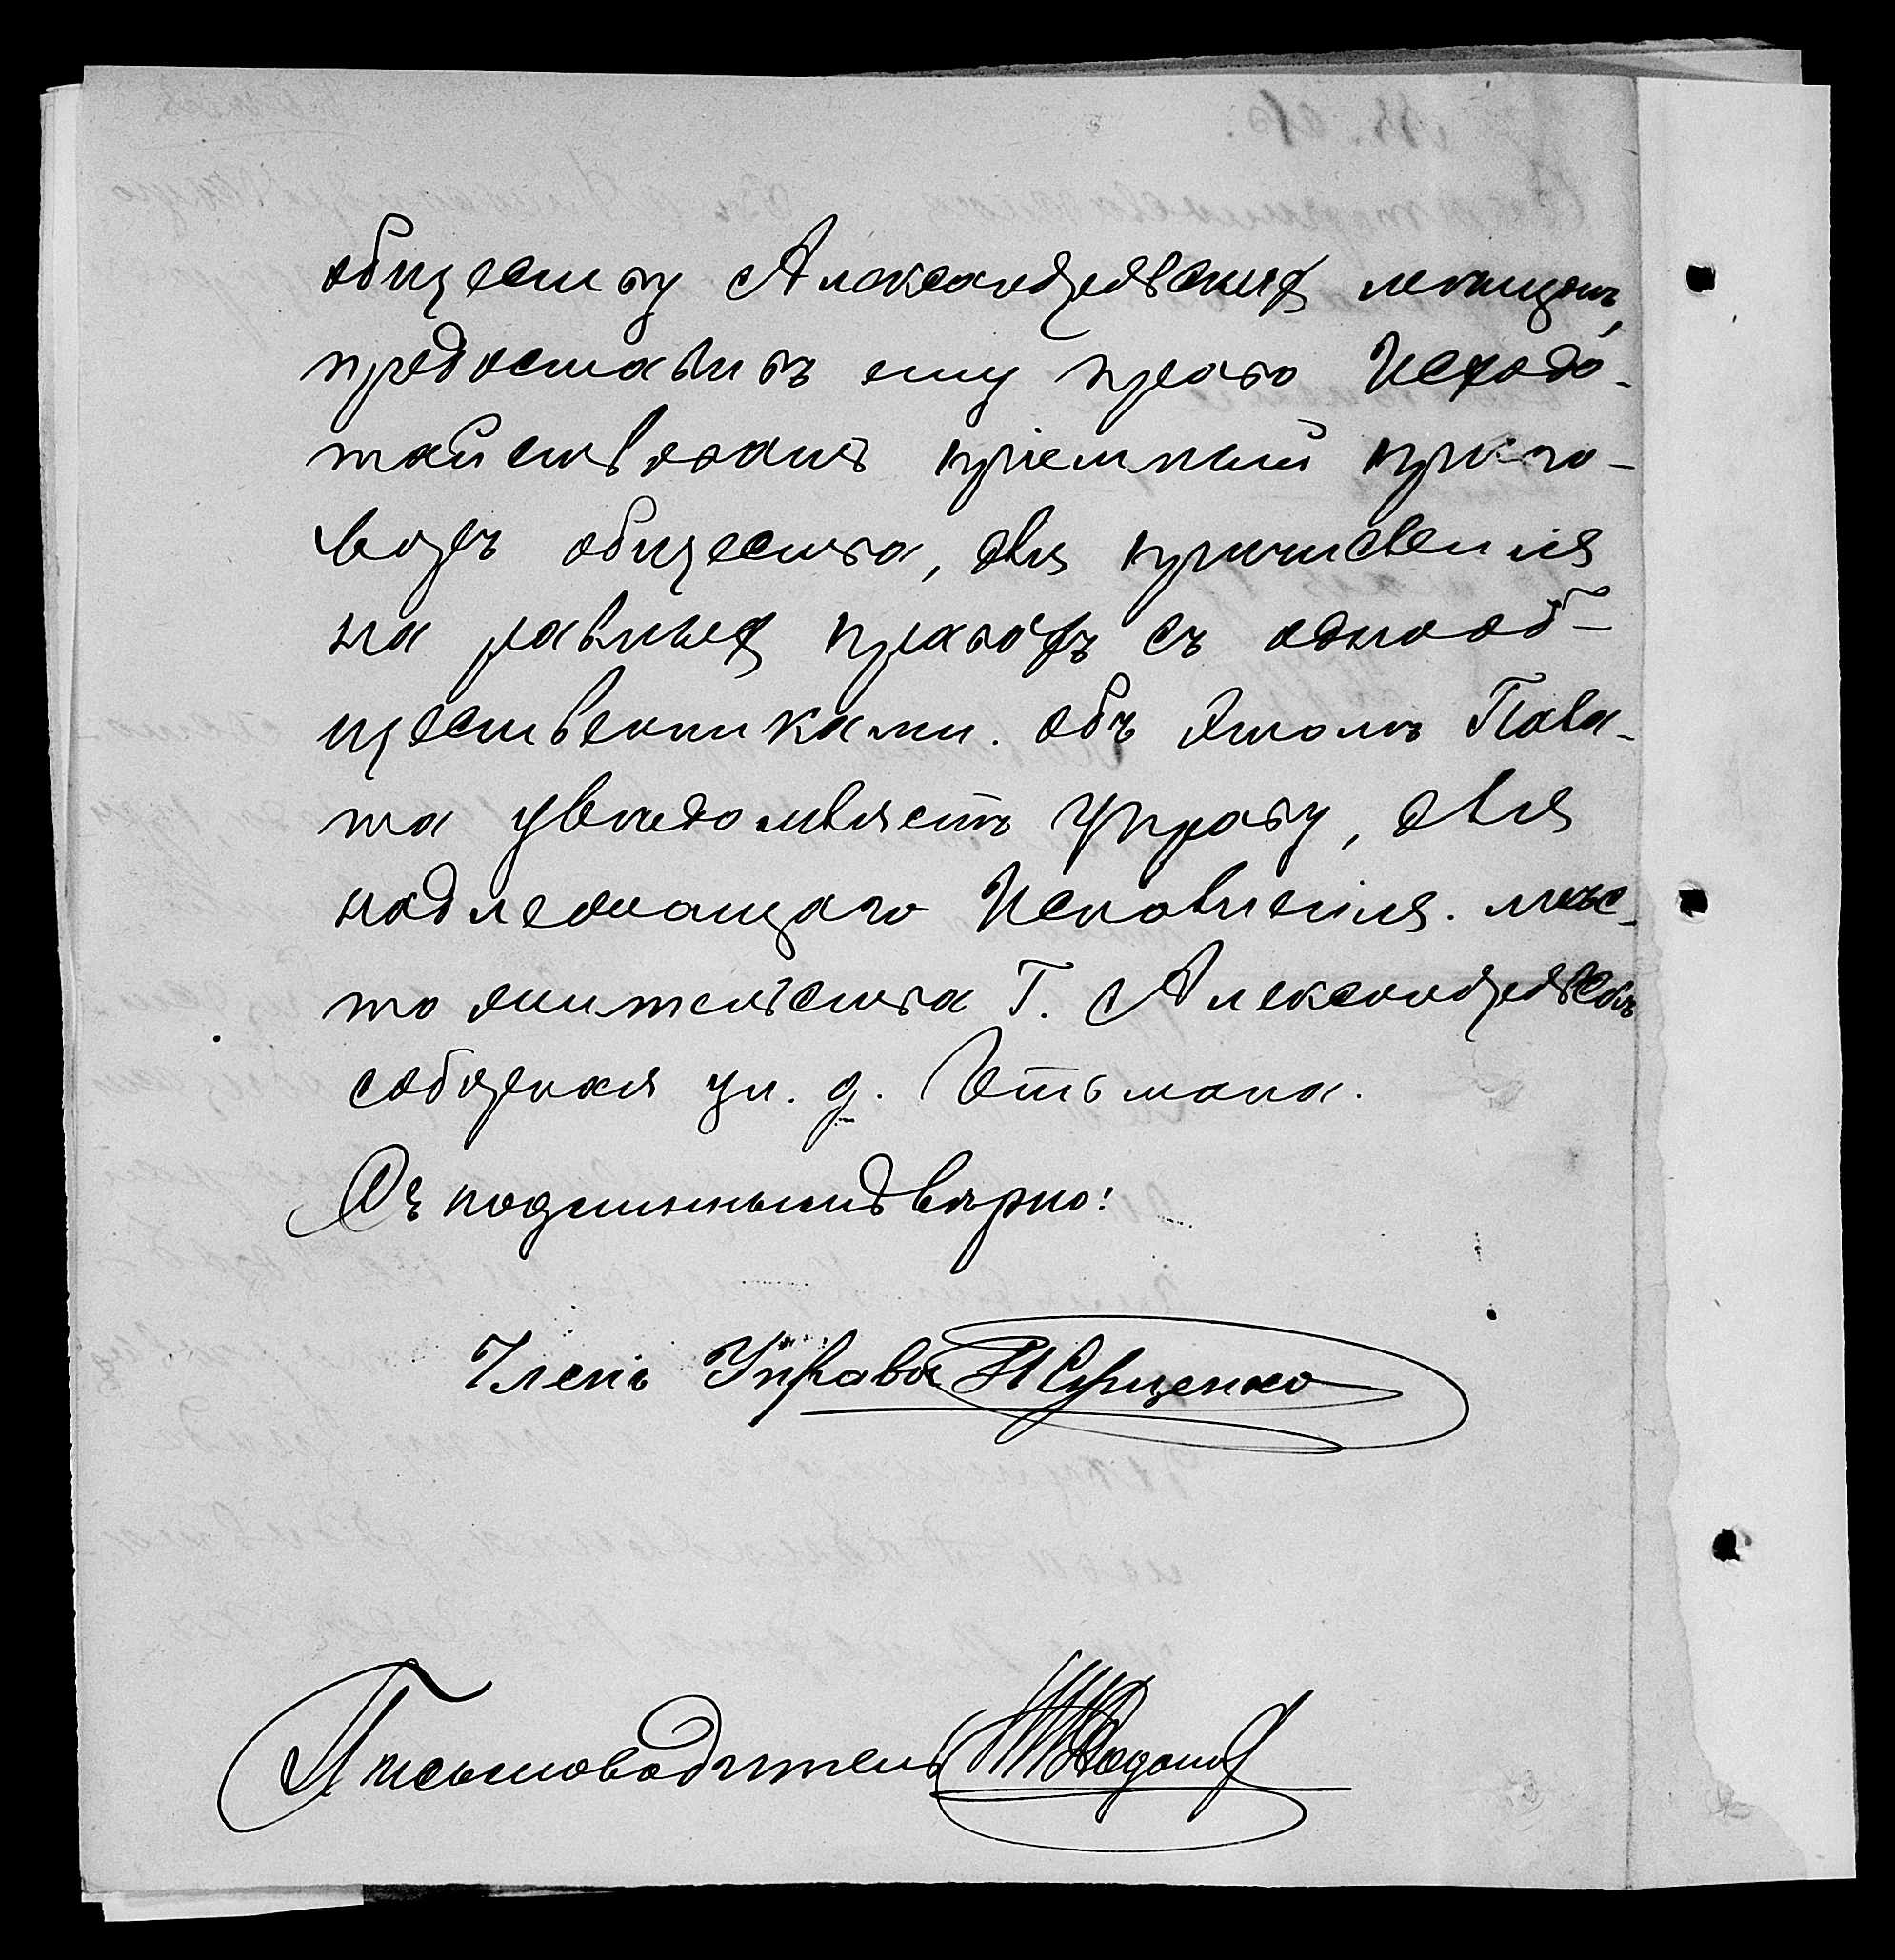 обществу Александровских мещанъ,
предоставить ему право Исходо-
тайствовать пріемный приго-
воръ общества, для причисленія
на равных правахъ съ однооб-
щественниками. объ этомъ Пала-
та уведомляетъ Управу, для
надлежащаго Исполненія. мѣс-
то жительства Г. Александровскъ
соборная ул. д. Гетьмана.
Съ подлиннымъ вѣрно:
Членъ Управы Сущенко
Письмоводитель